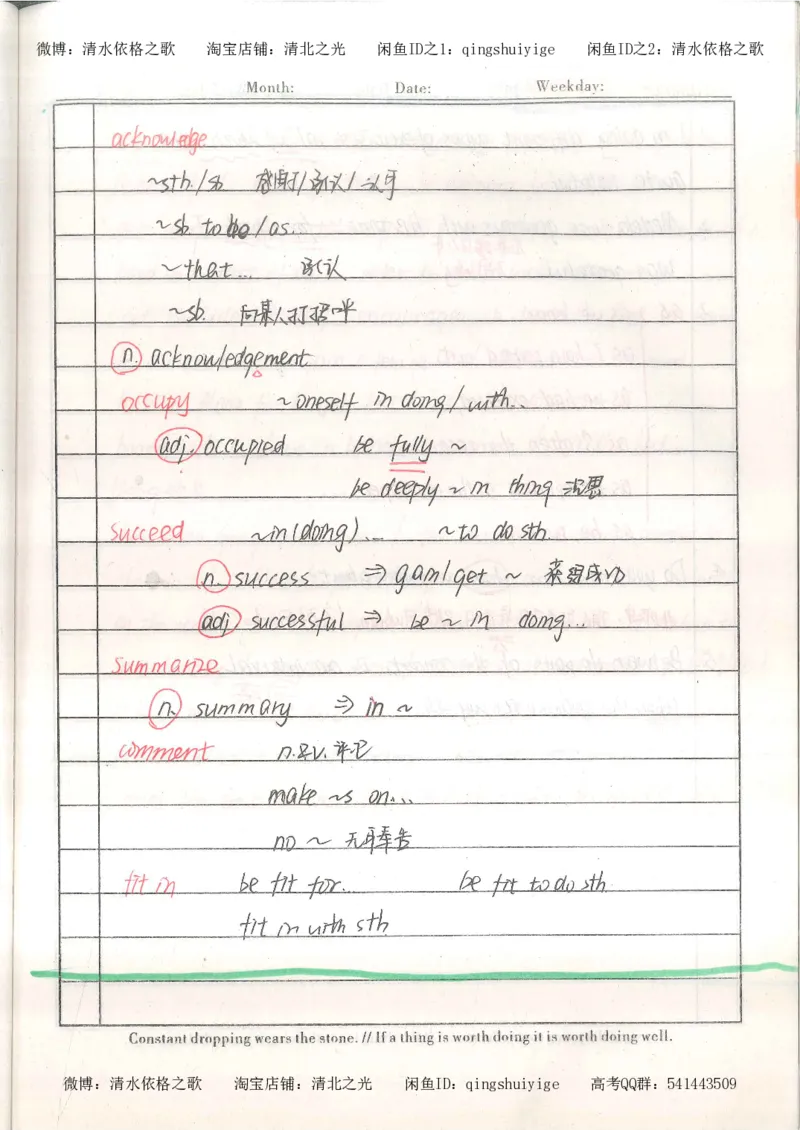 微博：清水依格之歌 淘宝店铺：清北之光 闲鱼ID之1：qingshuiyige 闲鱼ID之2：清水依格之歌
Month: Date: Weekday:
acknowledge
~sth./sb. 感谢/承认/认可
~sb. to be/as.
~that... 承认
~sb. 向某人打招呼
n. acknowledgement
occupy ~oneself in doing/with..
adj. occupied be fully ~
be deeply ~ in thing 沉思
succeed ~in(doing)... ~to do sth.
n. success ⇒ gain/get ~ 获得成功
adj successful ⇒ be ~ in doing...
summarize
n. summary ⇒ in ~
comment n.&v. 评记
make ~s on...
no ~ 无可奉告
fit in be fit for... be fit to do sth.
fit in with sth.
Constant dropping wears the stone. // If a thing is worth doing it is worth doing well.
微博：清水依格之歌 淘宝店铺：清北之光 闲鱼ID：qingshuiyige 高考QQ群：541443509